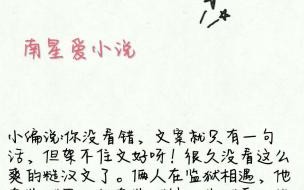 南星爱小说
小编说:你没看错，文案就只有一句
话，但架不住文好呀！很久没看这么
爽的糙汉文了。俩人在监狱相遇，他